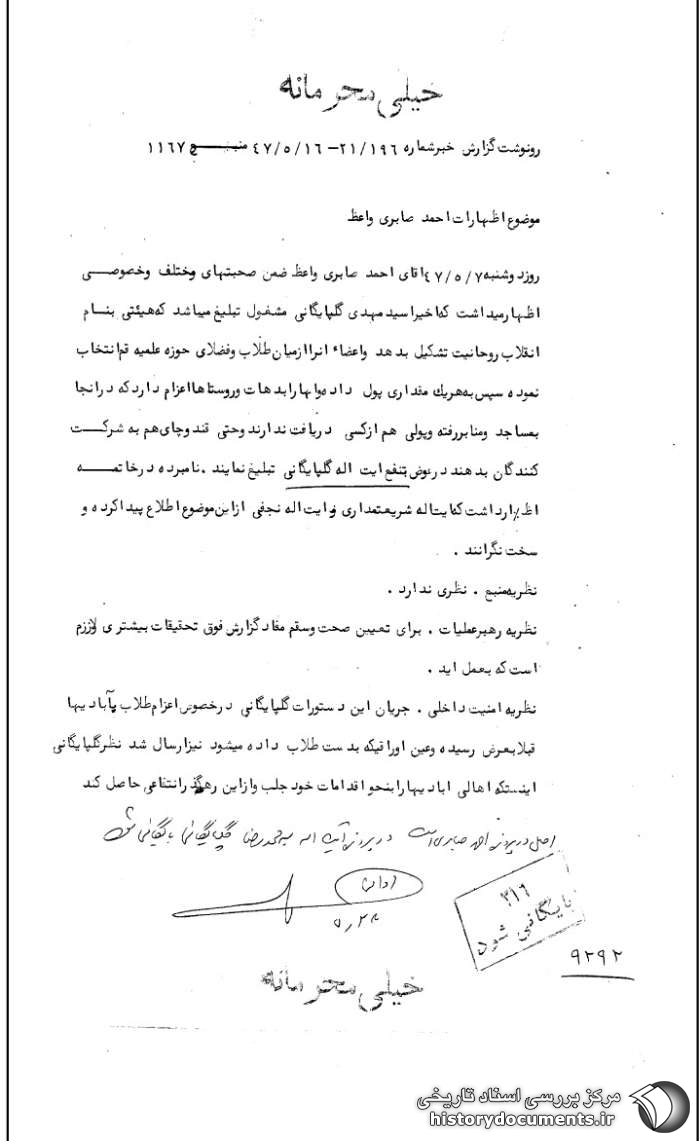 خیلی محرمانه
رونوشت گزارش خبر شماره ۲۱/۱۹۶-۴۷/۵/۱۶ منبـــع ۱۱۶۷
موضوع اظهارات احمد صابری واعظ
روز دوشنبه ۴۷/۵/۷ اقای احمد صابری واعظ ضمن صحبتهای مختلف وخصوصی
اظهار میداشت که اخیرا سید مهدی گلپایگانی مشغول تبلیغ میباشد که هیئتی بنام
انقلاب روحانیت تشکیل بدهد واعضاء انرا از میان طلاب وفضلای حوزه علمیه قم انتخاب
نموده سپس به هریک مقداری پول داده وانها را بدهات وروستاها اعزام دارد که در انجا
بمساجد ومنابر رفته وپولی هم از کسی دریافت ندارند وحتی قند وچای هم به شرکت
کنندگان بدهند در عوض بنفع ایت اله گلپایگانی تبلیغ نمایند . نامبرده در خاتمـــه
اظهار داشت که ایت اله شریعتمداری و ایت اله نجفی از این موضوع اطلاع پیدا کرده و
سخت نگرانند .
نظریه منبع . نظری ندارد .
نظریه رهبر عملیات . برای تعیین صحت وسقم مفاد گزارش فوق تحقیقات بیشتری لازم
است که بعمل اید .
نظریه امنیت داخلی . جریان این دستورات گلپایگانی در خصوص اعزام طلاب بآبادیها
قبلا بعرض رسیده وعین اوراقیکه بدست طلاب داده میشود نیز ارسال شد نظر گلپایگانی
اینستکه اهالی ابادیها را بنحو اقدامات خود جلب واز این رهگذر انتفاعی حاصل کند
اصل در پرونده احمد صابری است در پرونده آیت اله سید محمد رضا گلپایگانی بایگانی شود
۵/۲۸
۳۱۶
بایگانی شود
۹۲۹۲
خیلی محرمانه
مرکز بررسی اسناد تاریخی
historydocuments.ir